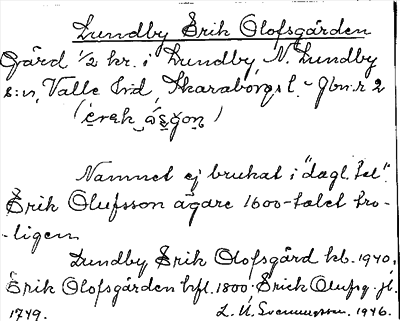 Lundby Erik Olofsgården
Gård 1/2 hr. i Lundby, N. Lundby
s:n, Valle hd, Skaraborgs l. - Jbn.r 2
Namnet ej brukat i "dagl. tal".
Erik Olufsson ägare 1600-talet tro-
-ligen.
Lundby Erik Olofsgård kb. 1940,
Erik Olofsgården hfl. 1800. Erick Olufsg. jb.
1749. L. A. 1946.